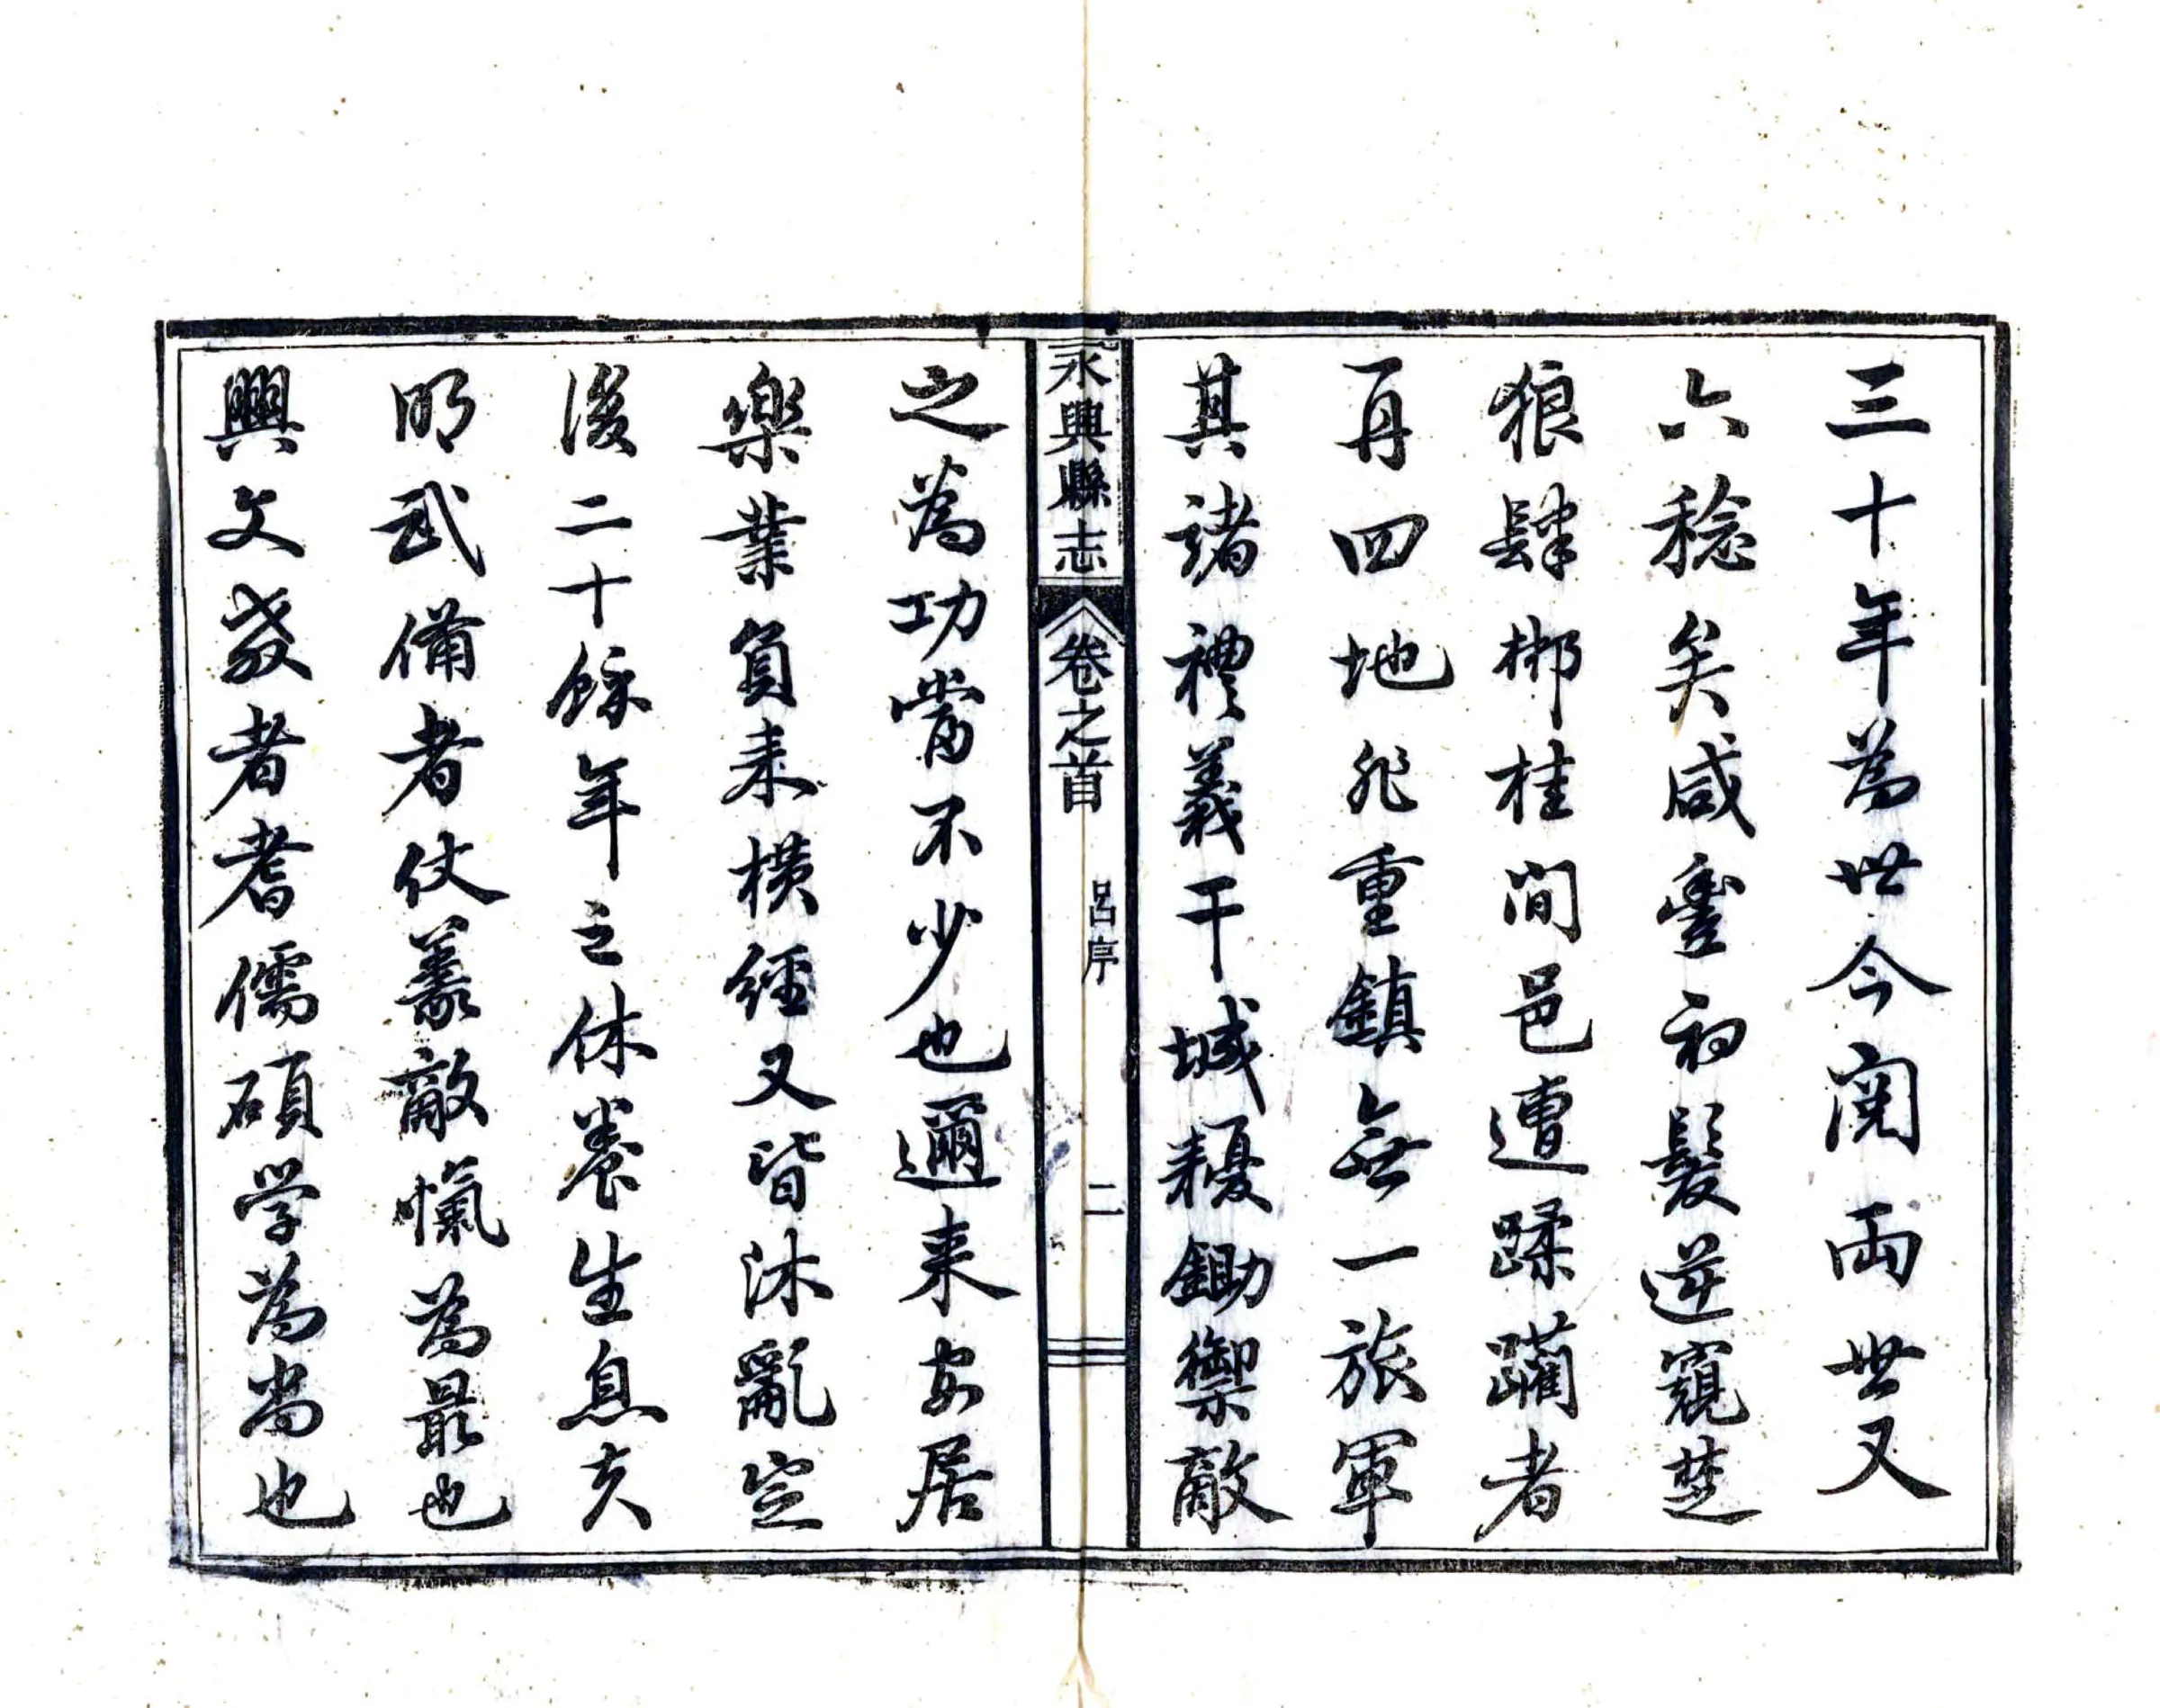 三十年為世今閱兩世又
六稔矣咸豐初髮逆窺楚
狼肆郴桂間邑遭蹂躪者
再四地非重鎮無一旅軍
其諸禮義干城耰鋤禦敵
永興縣志
卷之首
呂序
二
之為功當不少也邇来安居
樂業負耒橫經又皆沐亂定
後二十餘年之休養生息夫
明武備者仗義敵愾為最也
興文教者耆儒碩学為尚也